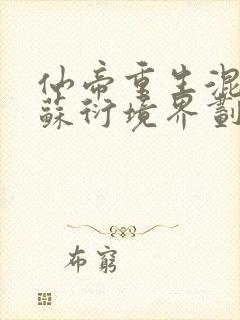 仙帝重生混
蘇衍境界劃
布窮